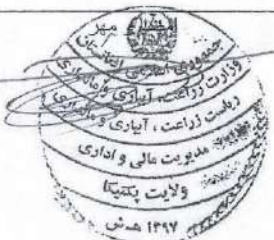 مهر
جمهوری اسلامی افغانستان
وزارت زراعت، آبیاری و مالداری
ریاست زراعت، آبیاری و مالداری
مدیریت مالی و اداری
ولایت پکتیکا
۱۳۹۷ هـ ش